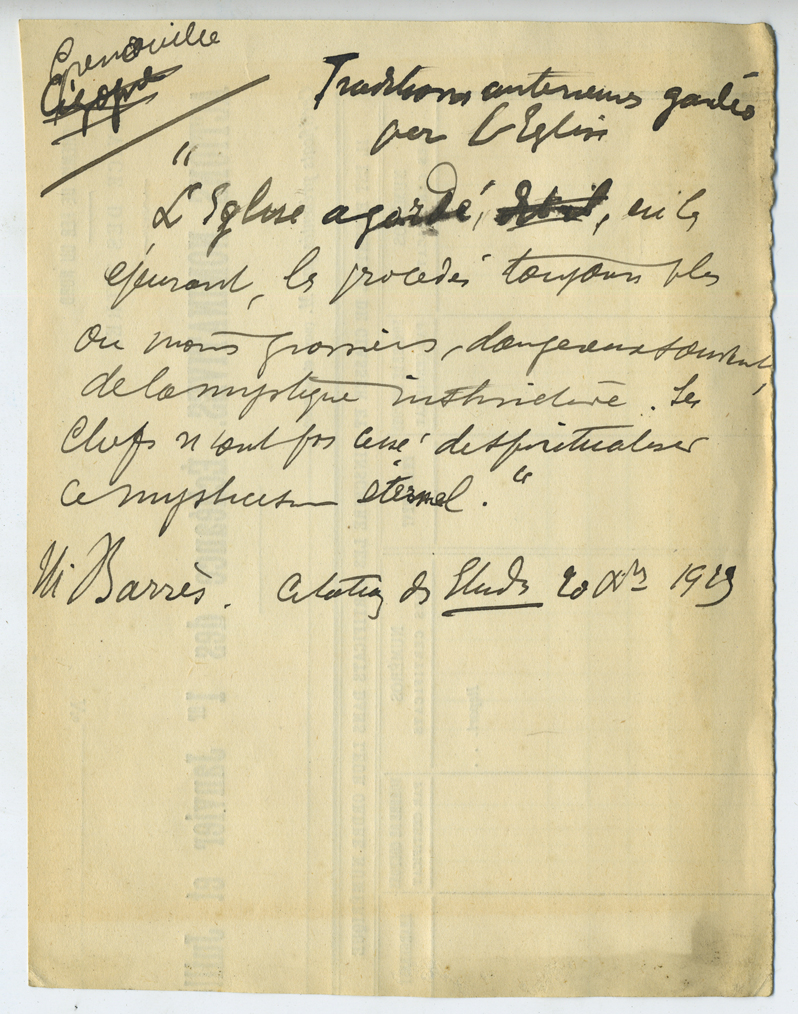 Grenouille
Cigogne
Traditions anterieures gardées
par l'Eglise
"
L'Eglise a gardé, dit-il, en les
épurant, les procédés toujours plus
ou moins grossiers, dangereux souvent,
de la mystique instinctive. Les
Chefs n'ont pas cessé de spiritualiser
ce mysticisme éternel."
M. Barrès. Citation des Etudes 20 Xbre 1923